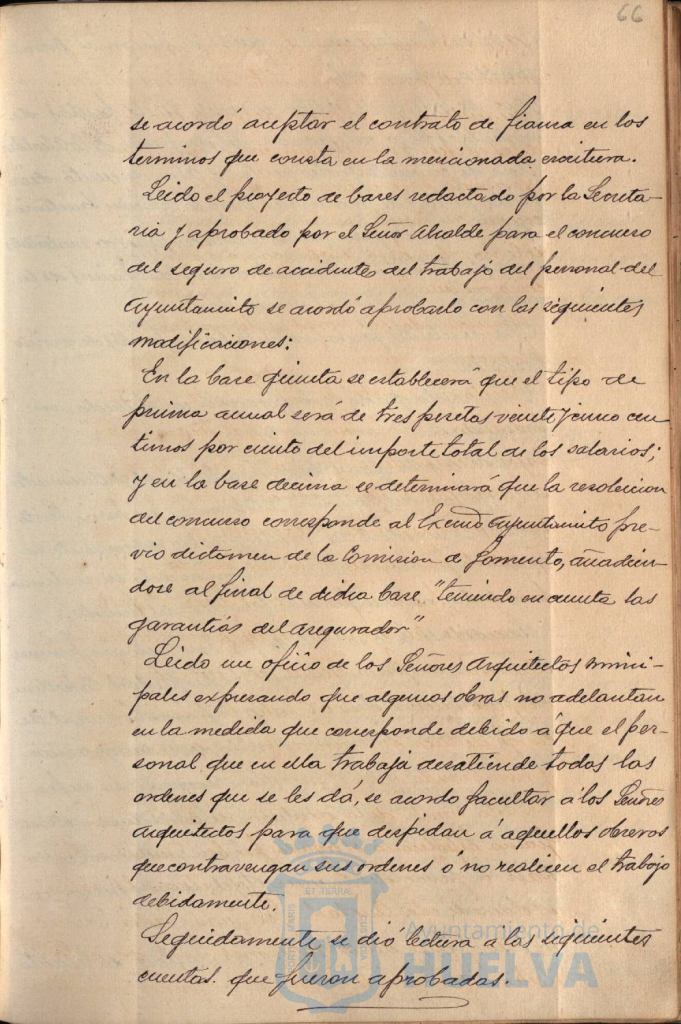 66
se acordó aceptar el contrato de fianza en los
terminos que consta en la mencionada escritura.
Leido el proyecto de bases redactado por la Secreta-
ria y aprobado por el Señor Alcalde para el concurso
del seguro de accidentes del trabajo del personal del
Ayuntamiento se acordó aprobarlo con las siguientes
modificaciones:
En la base quinta se establecerá que el tipo de
prima anual será de tres pesetas veinte y cinco cen-
timos por ciento del importe total de los salarios;
y en la base decima se determinará que la resolucion
del concurso corresponde al Excmo Ayuntamiento pre-
vio dictamen de la Comision de Fomento, añadien-
dose al final de dicha base "teniendo en cuenta las
garantias del asegurador"
Leido un oficio de los Señores Arquitectos muni-
pales expresando que algunos obras no adelantan
en la medida que corresponde debido á que el per-
sonal que en ella trabaja desatiende todas las
ordenes que se les dá, se acordo facultar á los Señores
Arquitectos para que despidan á aquellos obreros
que contravengan sus ordenes ó no realicen el trabajo
debidamente.
Seguidamente se dió lectura a las siguientes
cuentas. que fueron aprobadas.
Ayuntamiento de
HUELVA